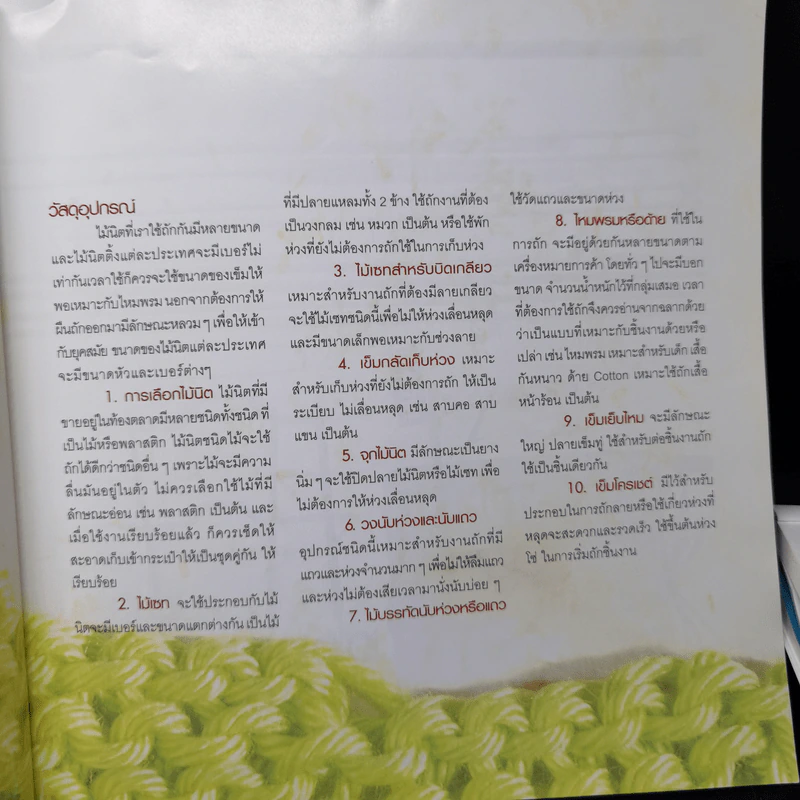 วัสดุอุปกรณ์
ไม้นิตที่เราใช้ถักกันมีหลายขนาด
และไม้นิตติ้งแต่ละประเทศจะมีเบอร์ไม่
เท่ากันเวลาใช้ก็ควรจะใช้ขนาดของเข็มให้
พอเหมาะกับไหมพรม นอกจากต้องการให้
ผืนถักออกมามีลักษณะหลวม ๆ เพื่อให้เข้า
กับยุคสมัย ขนาดของไม้นิตแต่ละประเทศ
จะมีขนาดหัวและเบอร์ต่างๆ
1. การเลือกไม้นิต ไม้นิตที่มี
ขายอยู่ในท้องตลาดมีหลายชนิดทั้งชนิด ที่
เป็นไม้หรือพลาสติก ไม้นิตชนิดไม้จะใช้
ถักได้ดีกว่าชนิดอื่น ๆ เพราะไม้จะมีความ
ลื่นมันอยู่ในตัว ไม่ควรเลือกใช้ไม้ที่มี
ลักษณะอ่อน เช่น พลาสติก เป็นต้น และ
เมื่อใช้งานเรียบร้อยแล้ว ก็ควรเช็ดให้
สะอาดเก็บเข้ากระเป๋าให้เป็นชุดคู่กัน ให้
เรียบร้อย
2. ไม้เซท จะใช้ประกอบกับไม้
นิตจะมีเบอร์และขนาดแตกต่างกัน เป็นไม้
ที่มีปลายแหลมทั้ง 2 ข้าง ใช้ถักงานที่ต้อง
เป็นวงกลม เช่น หมวก เป็นต้น หรือใช้พัก
ห่วงที่ยังไม่ต้องการถักใช้ในการเก็บห่วง
3. ไม้เซทสำหรับบิดเกลียว
เหมาะสำหรับงานถักที่ต้องมีลายเกลียว
จะใช้ไม้เซทชนิดนี้เพื่อไม่ให้ห่วงเลื่อนหลุด
และมีขนาดเล็กพอเหมาะกับช่วงลาย
4. เข็มกลัดเก็บห่วง เหมาะ
สำหรับเก็บห่วงที่ยังไม่ต้องการถัก ให้เป็น
ระเบียบ ไม่เลื่อนหลุด เช่น สาบคอ สาบ
แขน เป็นต้น
5. จุกไม้นิต มีลักษณะเป็นยาง
นิ่มๆ จะใช้ปิดปลายไม้นิตหรือไม้เซท เพื่อ
ไม่ต้องการให้ห่วงเลื่อนหลุด
6. วงนับห่วงและนับแถว
อุปกรณ์ชนิดนี้เหมาะสำหรับงานถักที่มี
แถวและห่วงจำนวนมาก ๆ เพื่อไม่ให้ลืมแถว
และห่วงไม่ต้องเสียเวลามานั่งนับบ่อย ๆ
7. ไม้บรรทัดนับห่วงหรือแถว
ใช้วัดแถวและขนาดห่วง
8. ไหมพรมหรือด้าย ที่ใช้ใน
การถัก จะมีอยู่ด้วยกันหลายขนาดตาม
เครื่องหมายการค้า โดยทั่ว ๆ ไปจะมีบอก
ขนาด จำนวนน้ำหนักไว้ที่กลุ่มเสมอ เวลา
ที่ต้องการใช้ถักจึงควรอ่านจากฉลากด้วย
ว่าเป็นแบบที่เหมาะกับชิ้นงานด้วยหรือ
เปล่า เช่น ไหมพรม เหมาะสำหรับเด็ก เสื้อ
กันหนาว ด้าย Cotton เหมาะใช้ถักเสื้อ
หน้าร้อน เป็นต้น
9. เข็มเย็บไหม จะมีลักษณะ
ใหญ่ ปลายเข็มทู่ ใช้สำหรับต่อชิ้นงานถัก
ใช้เป็นชิ้นเดียวกัน
10. เข็มโครเชต์ มีไว้สำหรับ
ประกอบในการถักลายหรือใช้เกี่ยวห่วงที่
หลุดจะสะดวกและรวดเร็ว ใช้ขึ้นต้นห่วง
โซ่ ในการเริ่มถักชิ้นงาน